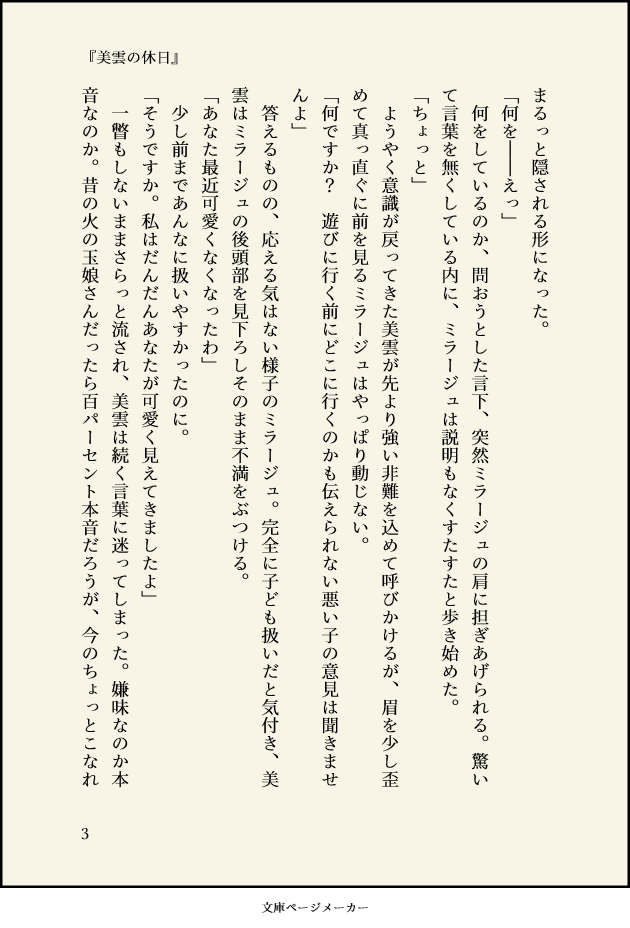 『美雲の休日』
まるっと隠される形になった。
「何を――えっ」
　何をしているのか、問おうとした言下、突然ミラージュの肩に担ぎあげられる。驚い
て言葉を無くしている内に、ミラージュは説明もなくすたすたと歩き始めた。
「ちょっと」
　ようやく意識が戻ってきた美雲が先より強い非難を込めて呼びかけるが、眉を少し歪
めて真っ直ぐに前を見るミラージュはやっぱり動じない。
「何ですか？　遊びに行く前にどこに行くのかも伝えられない悪い子の意見は聞きませ
んよ」
　答えるものの、応える気はない様子のミラージュ。完全に子ども扱いだと気付き、美
雲はミラージュの後頭部を見下ろしそのまま不満をぶつける。
「あなた最近可愛くなくなったわ」
　少し前まであんなに扱いやすかったのに。
「そうですか。私はだんだんあなたが可愛く見えてきましたよ」
　一瞥もしないままさらっと流され、美雲は続く言葉に迷ってしまった。嫌味なのか本
音なのか。昔の火の玉娘さんだったら百パーセント本音だろうが、今のちょっとこなれ
3
文庫ページメーカー